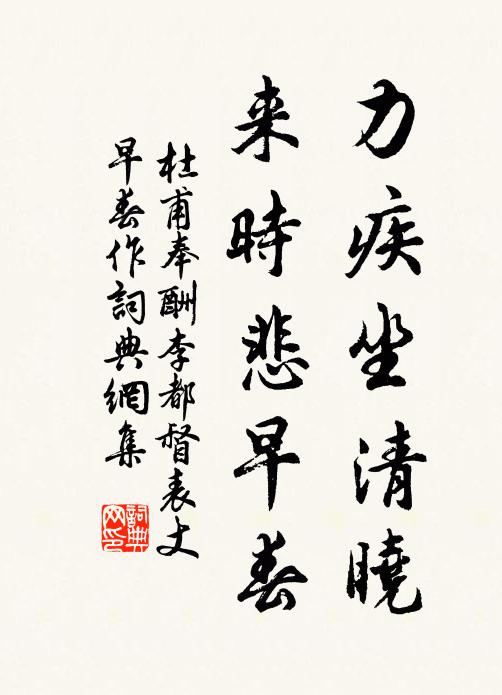 力疾坐清曉
来時悲早春
杜甫奉酬李都督表丈
早春作詞典網集
詞典网印